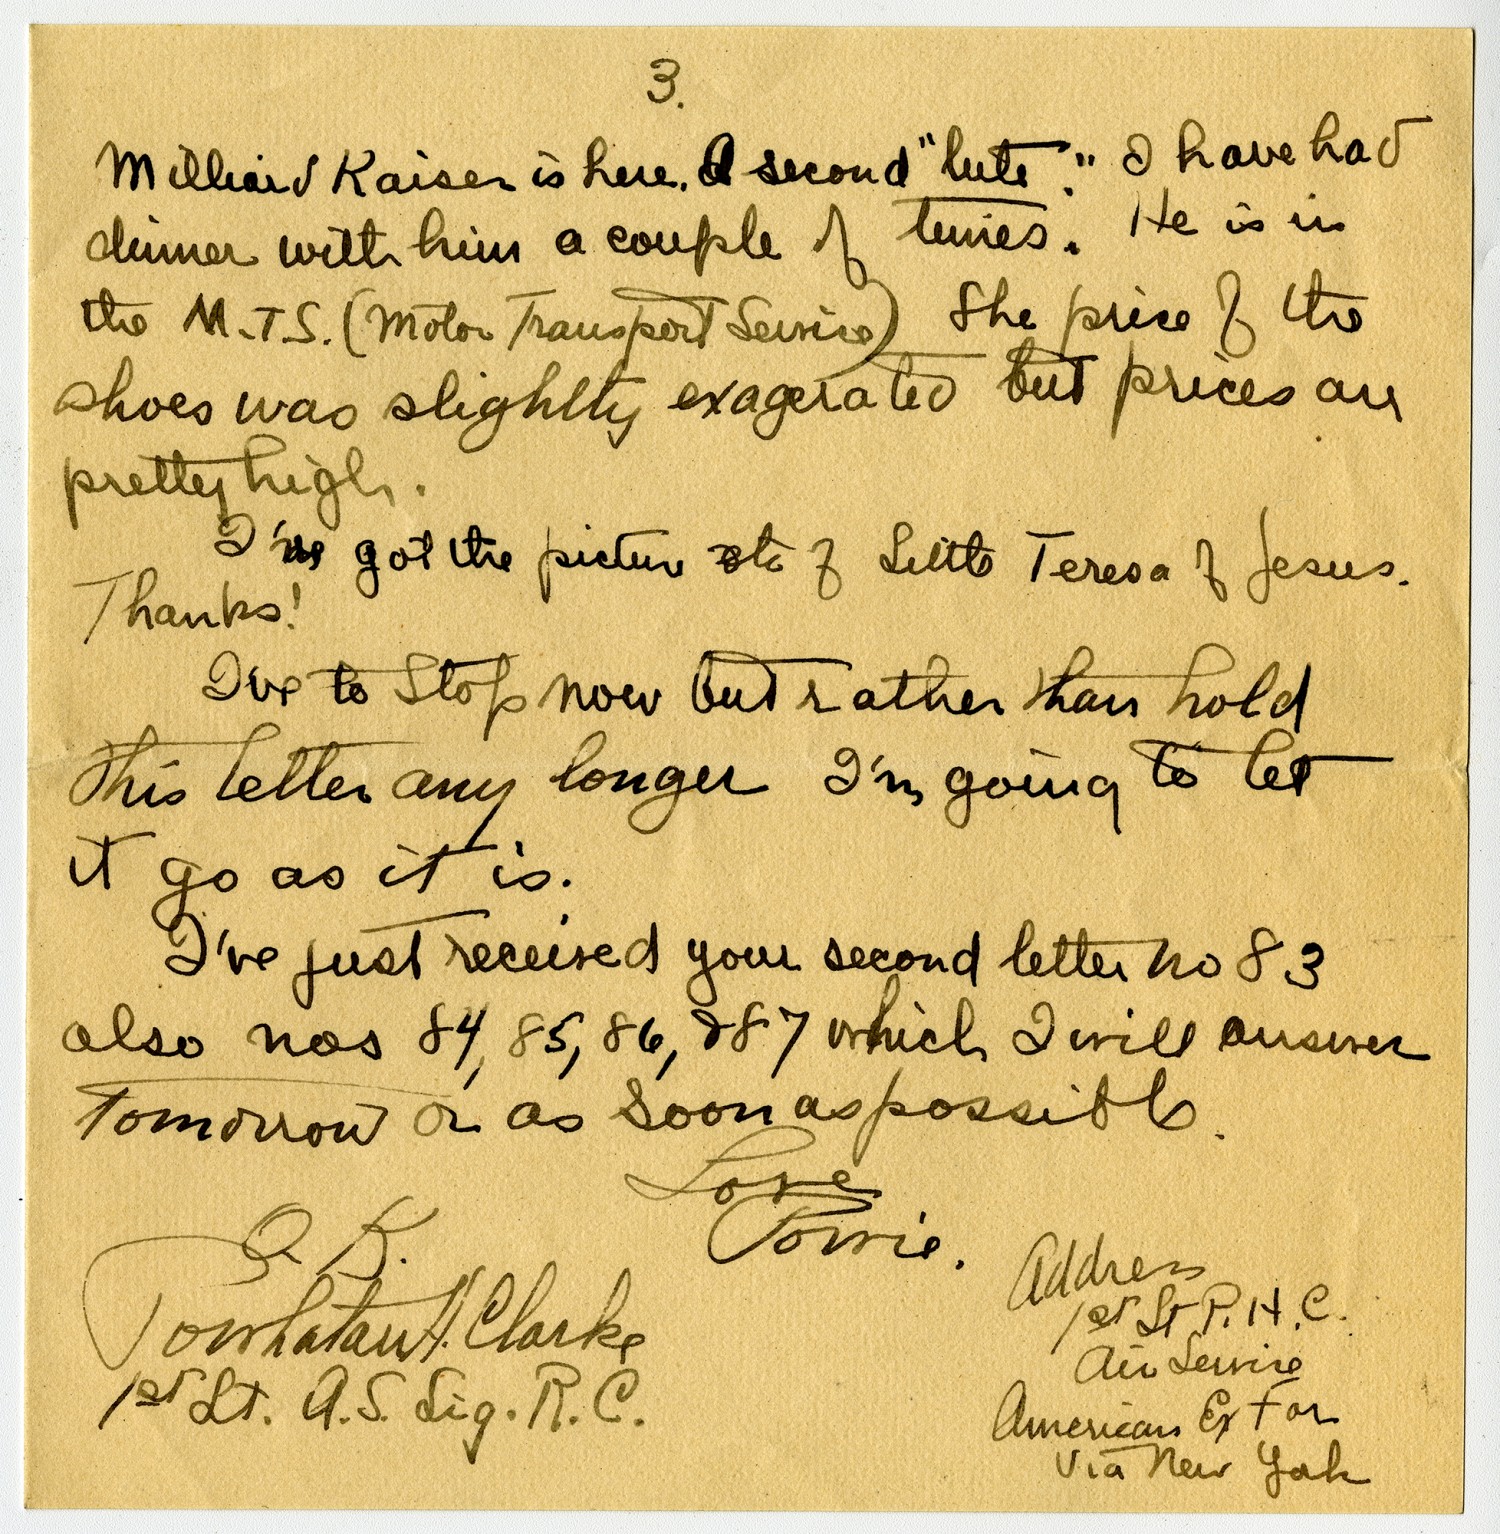 3.
Milliard Kaiser is here. A second "lute." I have had
dinner with him a couple of times. He is in
the M.T.S. (Motor Transport Service) The price of the
shoes was slightly exagerated but prices are
pretty high.
I've got the picture etc of Little Teresa of Jesus.
Thanks!
I've to stop now but rather than hold
this letter any longer I'm going to let
it go as it is.
I've just received your second letter no 83
also nos 84, 85, 86, & 87 which I will answer
tomorrow or as soon as possible.
Love
Powie.
O.K.
Powhatan H. Clarke
1st Lt. A.S. Sig. R.C.
Address
1st Lt P. H. C.
Air Service
American Ex For
Via New York